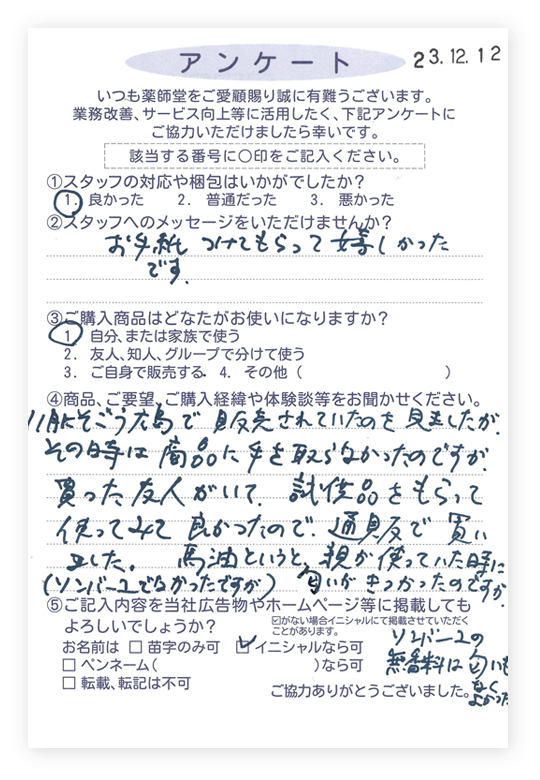 アンケート
23.12.12
いつも薬師堂をご愛顧賜り誠に有難うございます。
業務改善、サービス向上等に活用したく、下記アンケートに
ご協力いただけましたら幸いです。
該当する番号に○印をご記入ください。
①スタッフの対応や梱包はいかがでしたか?
1. 良かった 2. 普通だった 3. 悪かった
②スタッフへのメッセージをいただけませんか?
お手紙 つけてもらって嬉しかった
です.
③ご購入商品はどなたがお使いになりますか?
1 自分、または家族で使う
2. 友人、知人、グループで分けて使う
3. ご自身で販売する. 4. その他( )
④商品、ご要望、ご購入経緯や体験談等をお聞かせください。
11月にそごう広島で 販売されていたのを見ましたが.
その時は 商品に手を取らなかったのですが.
買った友人がいて. 試供品をもらって
使ってみて 良かったので. 通販で 買い
ました. 馬油というと、親が使っていた時に
(ソンバーユでなかったですが) 匂いが きつかったのですが.
⑤ご記入内容を当社広告物やホームページ等に掲載しても
よろしいでしょうか?
☑がない場合イニシャルにて掲載させていただく
ことがあります。
お名前は □ 苗字のみ可 ☑イニシャルなら可
□ ペンネーム( )なら可
□ 転載、転記は不可
ソンバーユの
無香料は 匂いも
なく
よかった
ご協力ありがとうございました。